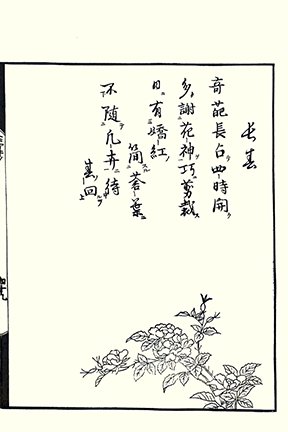 長春
奇葩長占四時開
多謝花神巧剪裁
日有嬌紅
簡蒼葉
不随凡卉待
春回